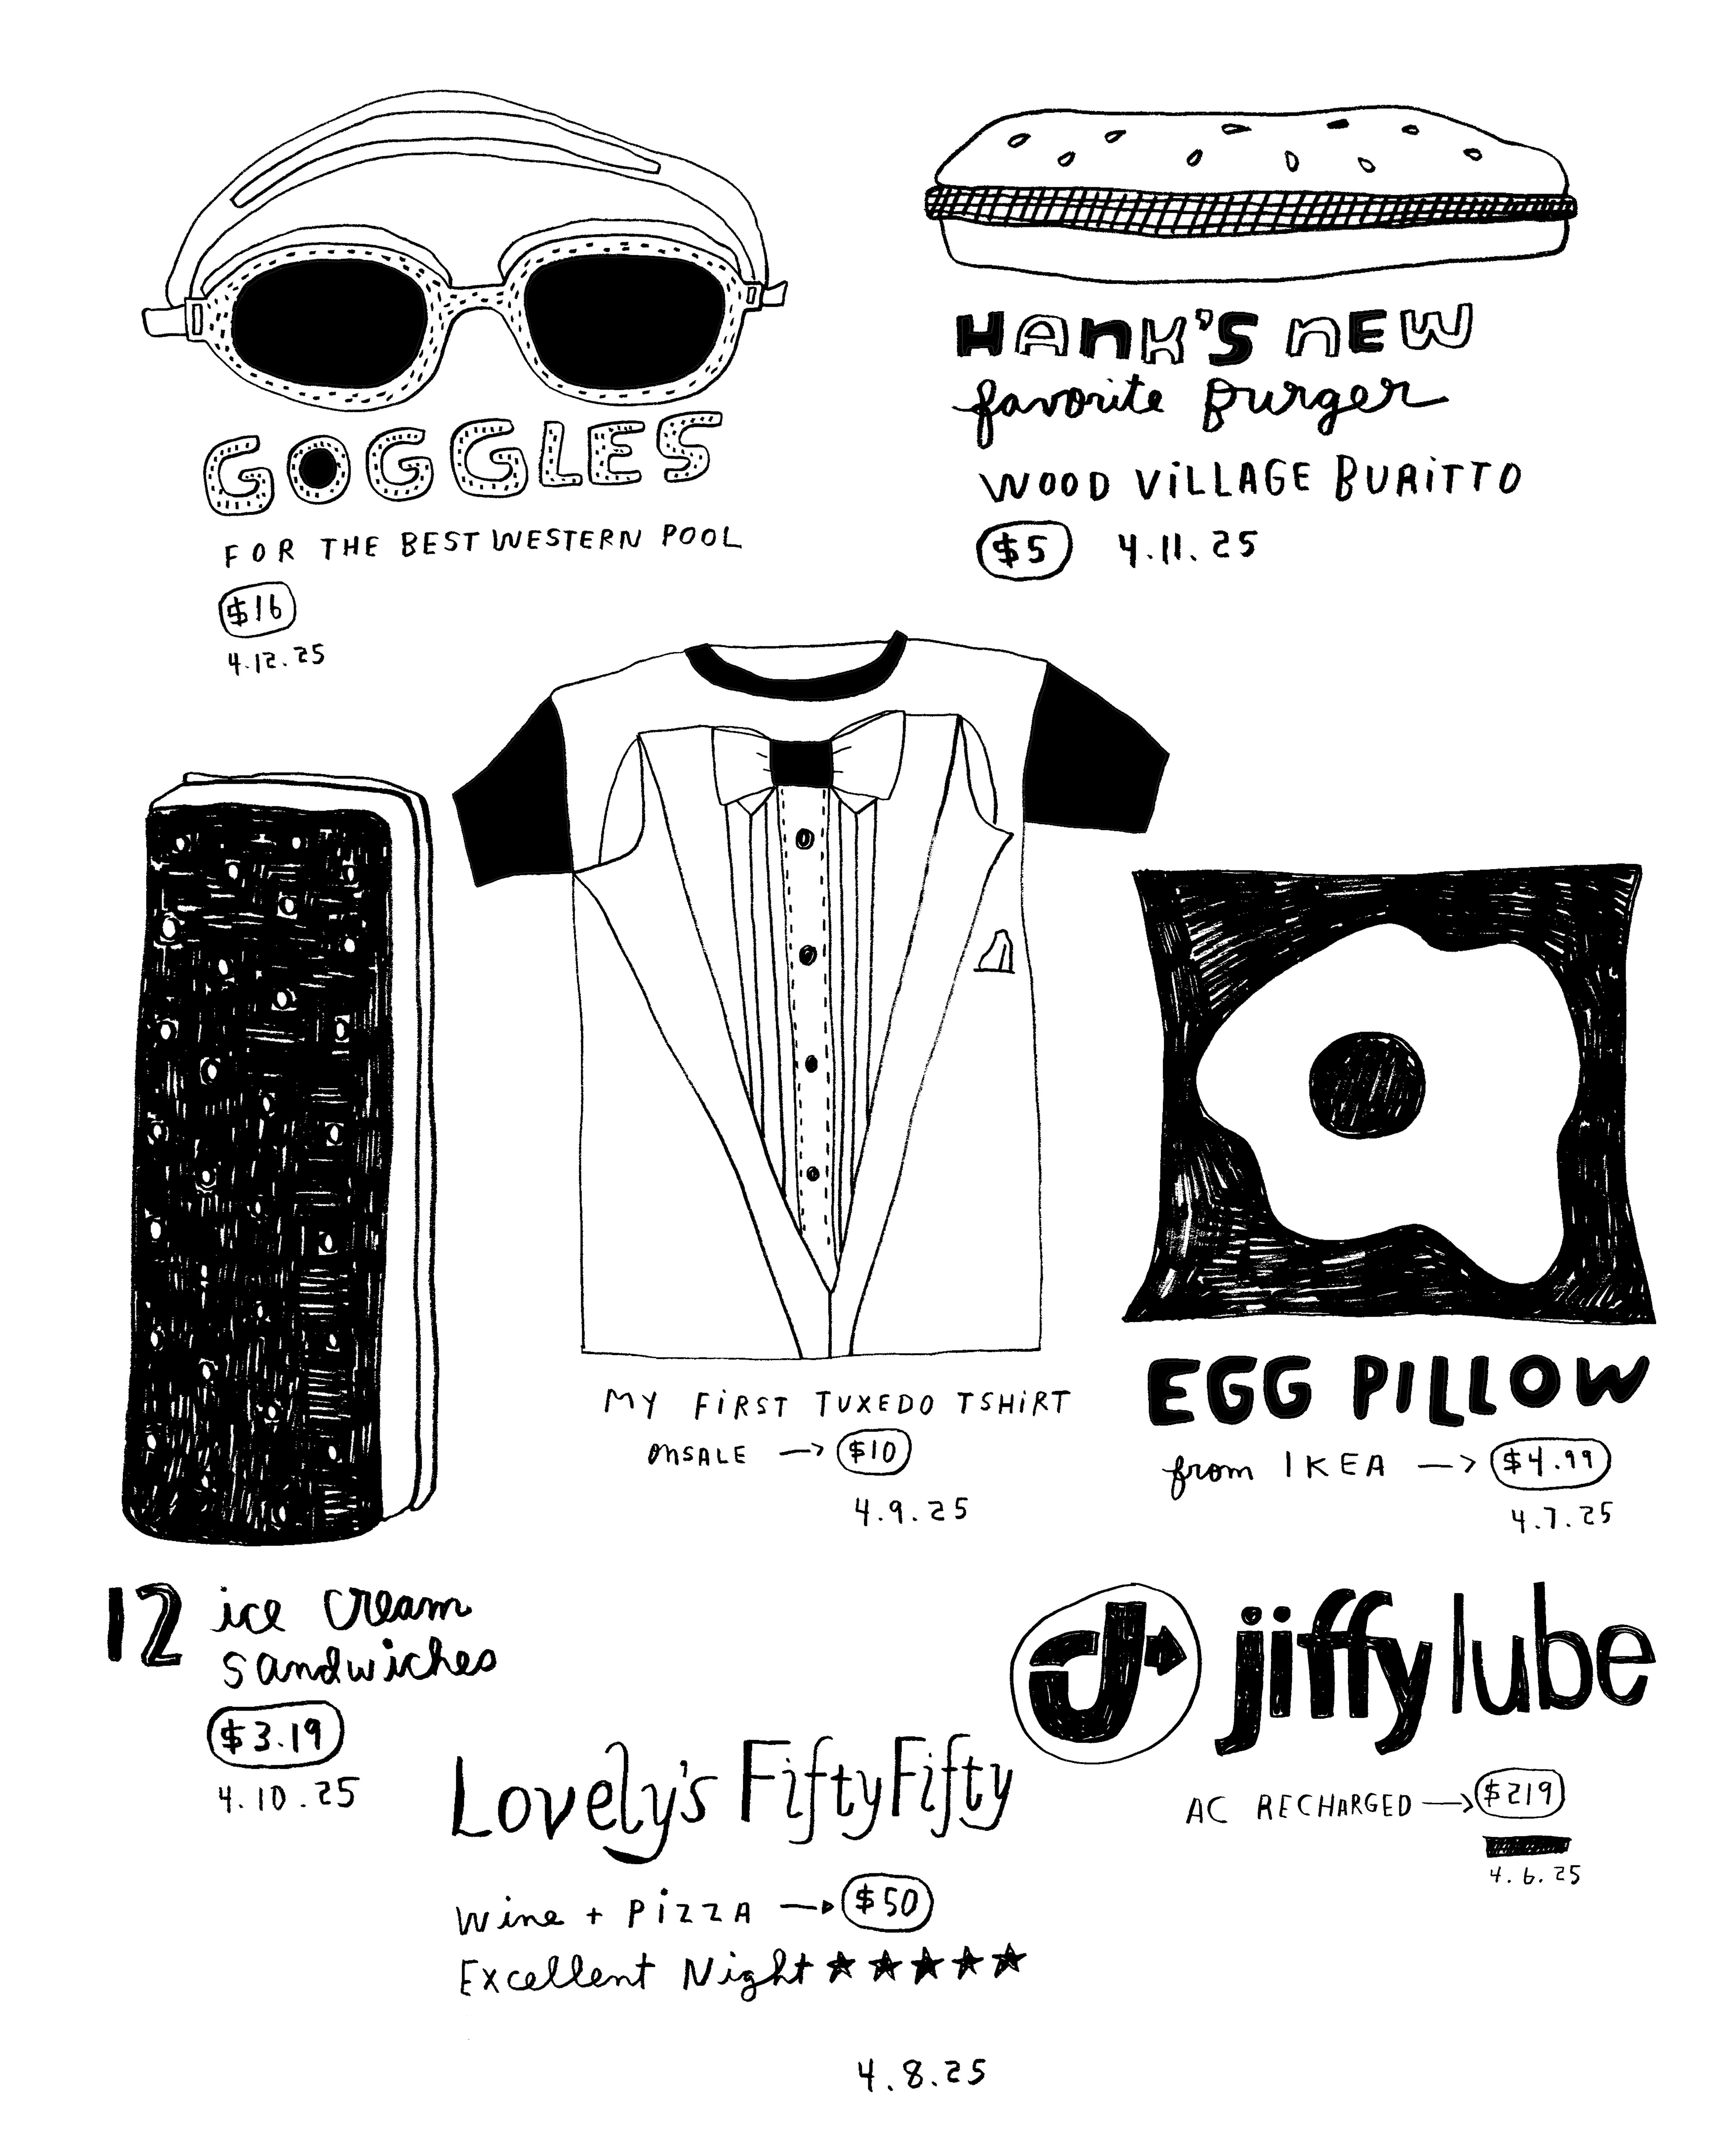 GOGGLES
FOR THE BEST WESTERN POOL
$16
4.12.25
HANK'S NEW
favorite Burger
WOOD VILLAGE BURITTO
$5 4.11.25
MY FIRST TUXEDO TSHIRT
ONSALE → $10
4.9.25
EGG PILLOW
from IKEA → $4.99
4.7.25
12 ice cream
sandwiches
$3.19
4.10.25
jiffy lube
AC RECHARGED → $219
4.6.25
Lovely's FiftyFifty
Wine + PIZZA → $50
Excellent Night ★★★★★
4.8.25